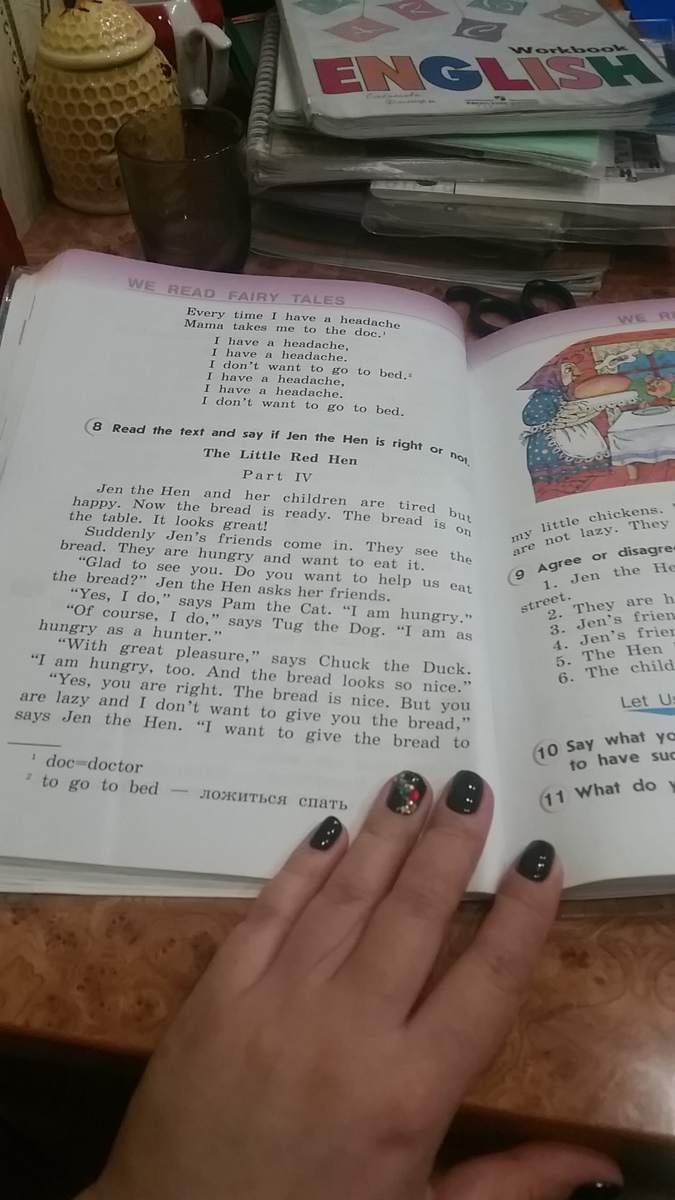 Workbook
ENGLISH
WE READ FAIRY TALES
Every time I have a headache
Mama takes me to the doc.¹
I have a headache,
I have a headache.
I don't want to go to bed.²
I have a headache,
I have a headache.
I don't want to go to bed.
8 Read the text and say if Jen the Hen is right or not.
The Little Red Hen
Part IV
Jen the Hen and her children are tired but
happy. Now the bread is ready. The bread is on
the table. It looks great!
Suddenly Jen's friends come in. They see the
bread. They are hungry and want to eat it.
“Glad to see you. Do you want to help us eat
the bread?” Jen the Hen asks her friends.
“Yes, I do,” says Pam the Cat. “I am hungry.”
“Of course, I do,” says Tug the Dog. “I am as
hungry as a hunter.”
“With great pleasure,” says Chuck the Duck.
“I am hungry, too. And the bread looks so nice.”
“Yes, you are right. The bread is nice. But you
are lazy and I don't want to give you the bread,”
says Jen the Hen. “I want to give the bread to
¹ doc=doctor
² to go to bed — ложиться спать
WE R
my little chickens.
are not lazy. They
9 Agree or disagre
1. Jen the He
street.
2. They are h
3. Jen's frien
4. Jen's frier
5. The Hen
6. The child
Let Us
10 Say what yo
to have suc
11 What do y